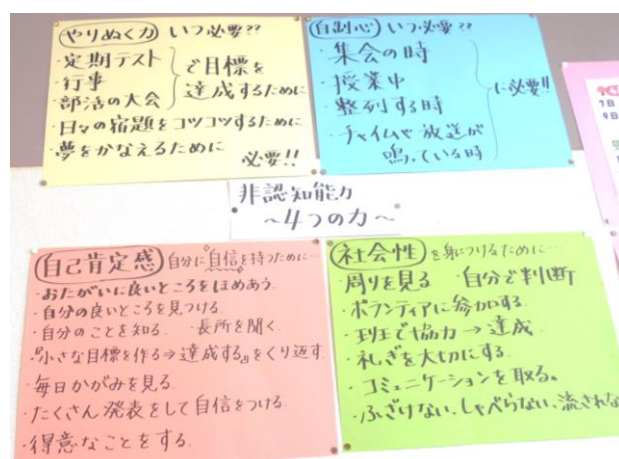 やりぬく力 いつ必要??
・定期テスト
・行事
・部活の大会
で目標を
達成するために
・日々の宿題をコツコツするために
・夢をかなえるために
必要!!
自制心 いつ必要??
・集会の時
・授業中
・整列する時
・チャイムや放送が
鳴っている時
に必要!!
7日
9日
非認知能力
~4つの力~
自己肯定感 自分に自信を持つために…
・おたがいに良いところをほめあう
・自分の良いところを見つける
・自分のことを知る ・長所を聞く
・『小さな目標を作る⇒達成する』をくり返す
・毎日かがみを見る
・たくさん発表をして自信をつける
・得意なことをする
社会性 を身につけるために…
・周りを見る ・自分で判断
・ボランティアに参加する
・班で協力→達成
・礼ぎを大切にする
・コミュニケーションを取る。
・ふざけない、しゃべらない、流されな